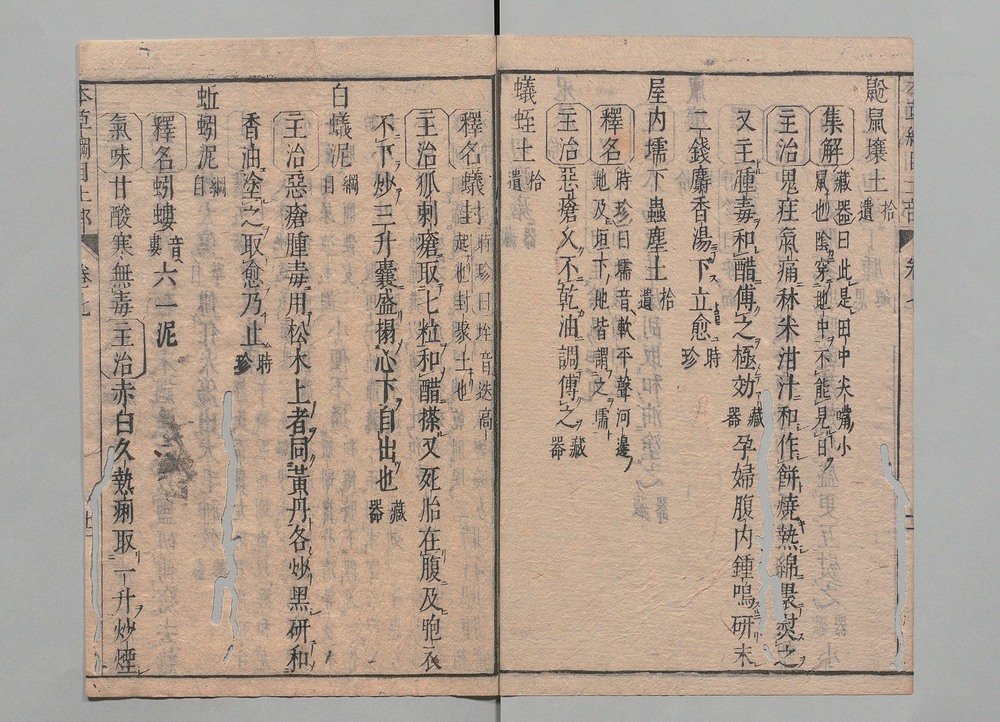 鼢鼠壤土 拾遺
集解 藏器曰此是田中尖嘴小
鼠也陰穿地中不能見日
主治 鬼疰氣痛秫米泔汁和作餅燒熱綿裹熨之
又主腫毒和醋傅之極效 藏器 孕婦腹内鍾鳴研末
二錢麝香湯下立愈 時珍
屋内壖下蟲塵土 拾遺
釋名 時珍曰壖音軟平聲河邊
地及垣下地皆謂之壖
主治 惡瘡久不乾油調傅之 藏器
蟻垤土 拾遺
釋名 蟻封 時珍曰垤音迭高
起也封聚土也
主治 狐刺瘡取七粒和醋搽又死胎在腹及胞衣
不下炒三升囊盛搨心下自出也 藏器
白蟻泥 綱目
主治 惡瘡腫毒用松木上者同黃丹各炒黑研和
香油塗之取愈乃止 時珍
蚯蚓泥 綱目
釋名 蚓螻 音婁 六一泥
氣味 甘酸寒無毒 主治 赤白久熱痢取一升炒煙